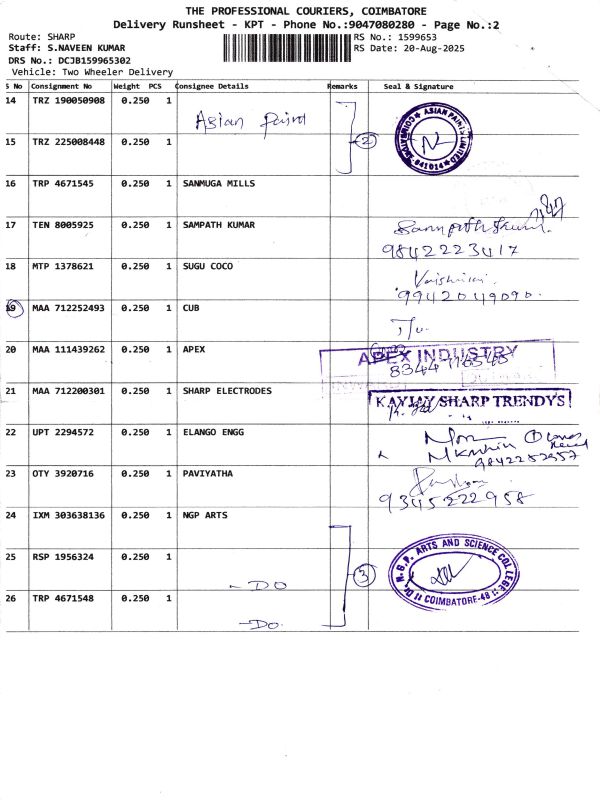 THE PROFESSIONAL COURIERS, COIMBATORE
Delivery Runsheet - KPT - Phone No.:9047080280 - Page No.:2
Route: SHARP RS No.: 1599653
Staff: S.NAVEEN KUMAR RS Date: 20-Aug-2025
DRS No.: DCJB159965302
Vehicle: Two Wheeler Delivery
S No Consignment No Weight PCS Consignee Details Remarks Seal & Signature
14 TRZ 190050908 0.250 1 Asian Paint
ASIAN PAINTS LIMITED COIMBATORE 641014
15 TRZ 225008448 0.250 1 2
16 TRP 4671545 0.250 1 SANMUGA MILLS
17 TEN 8005925 0.250 1 SAMPATH KUMAR
9842223417
18 MTP 1378621 0.250 1 SUGU COCO
9942049090
19 MAA 712252493 0.250 1 CUB
20 MAA 111439262 0.250 1 APEX APEX INDUSTRY
21 MAA 712200301 0.250 1 SHARP ELECTRODES KAYJAY SHARP TRENDYS
22 UPT 2294572 0.250 1 ELANGO ENGG
23 OTY 3920716 0.250 1 PAVIYATHA
9345222958
24 IXM 303638136 0.250 1 NGP ARTS
25 RSP 1956324 0.250 1 - DO 3
Dr. N.G.P. ARTS AND SCIENCE COLLEGE COIMBATORE-48
26 TRP 4671548 0.250 1 - DO.